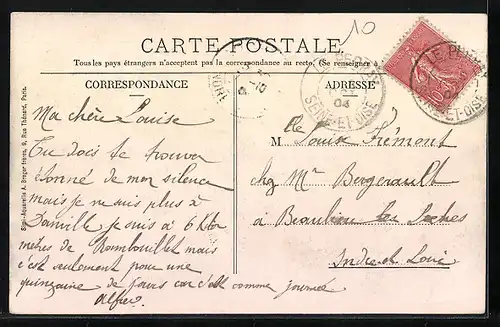 10
CARTE POSTALE.
Tous les pays étrangers n'acceptent pas la correspondance au recto. (Se renseigner à
CORRESPONDANCE
ADRESSE
SEINE-ET-OISE
Ma chère Louise
Tu dois te trouver
étonné de mon silence
mais je ne suis plus à
Dainville je suis à 6 Kilo
metres de Rambouillet mais
c'est seulement pour une
quinzaine de jours car c'est comme journée
Alfred
M Louise Frémont
chez Mr Bergerault
à Beaulieu les Loches
Indre et Loire
A. Breger frères, 9, Rue Thénard, Paris.